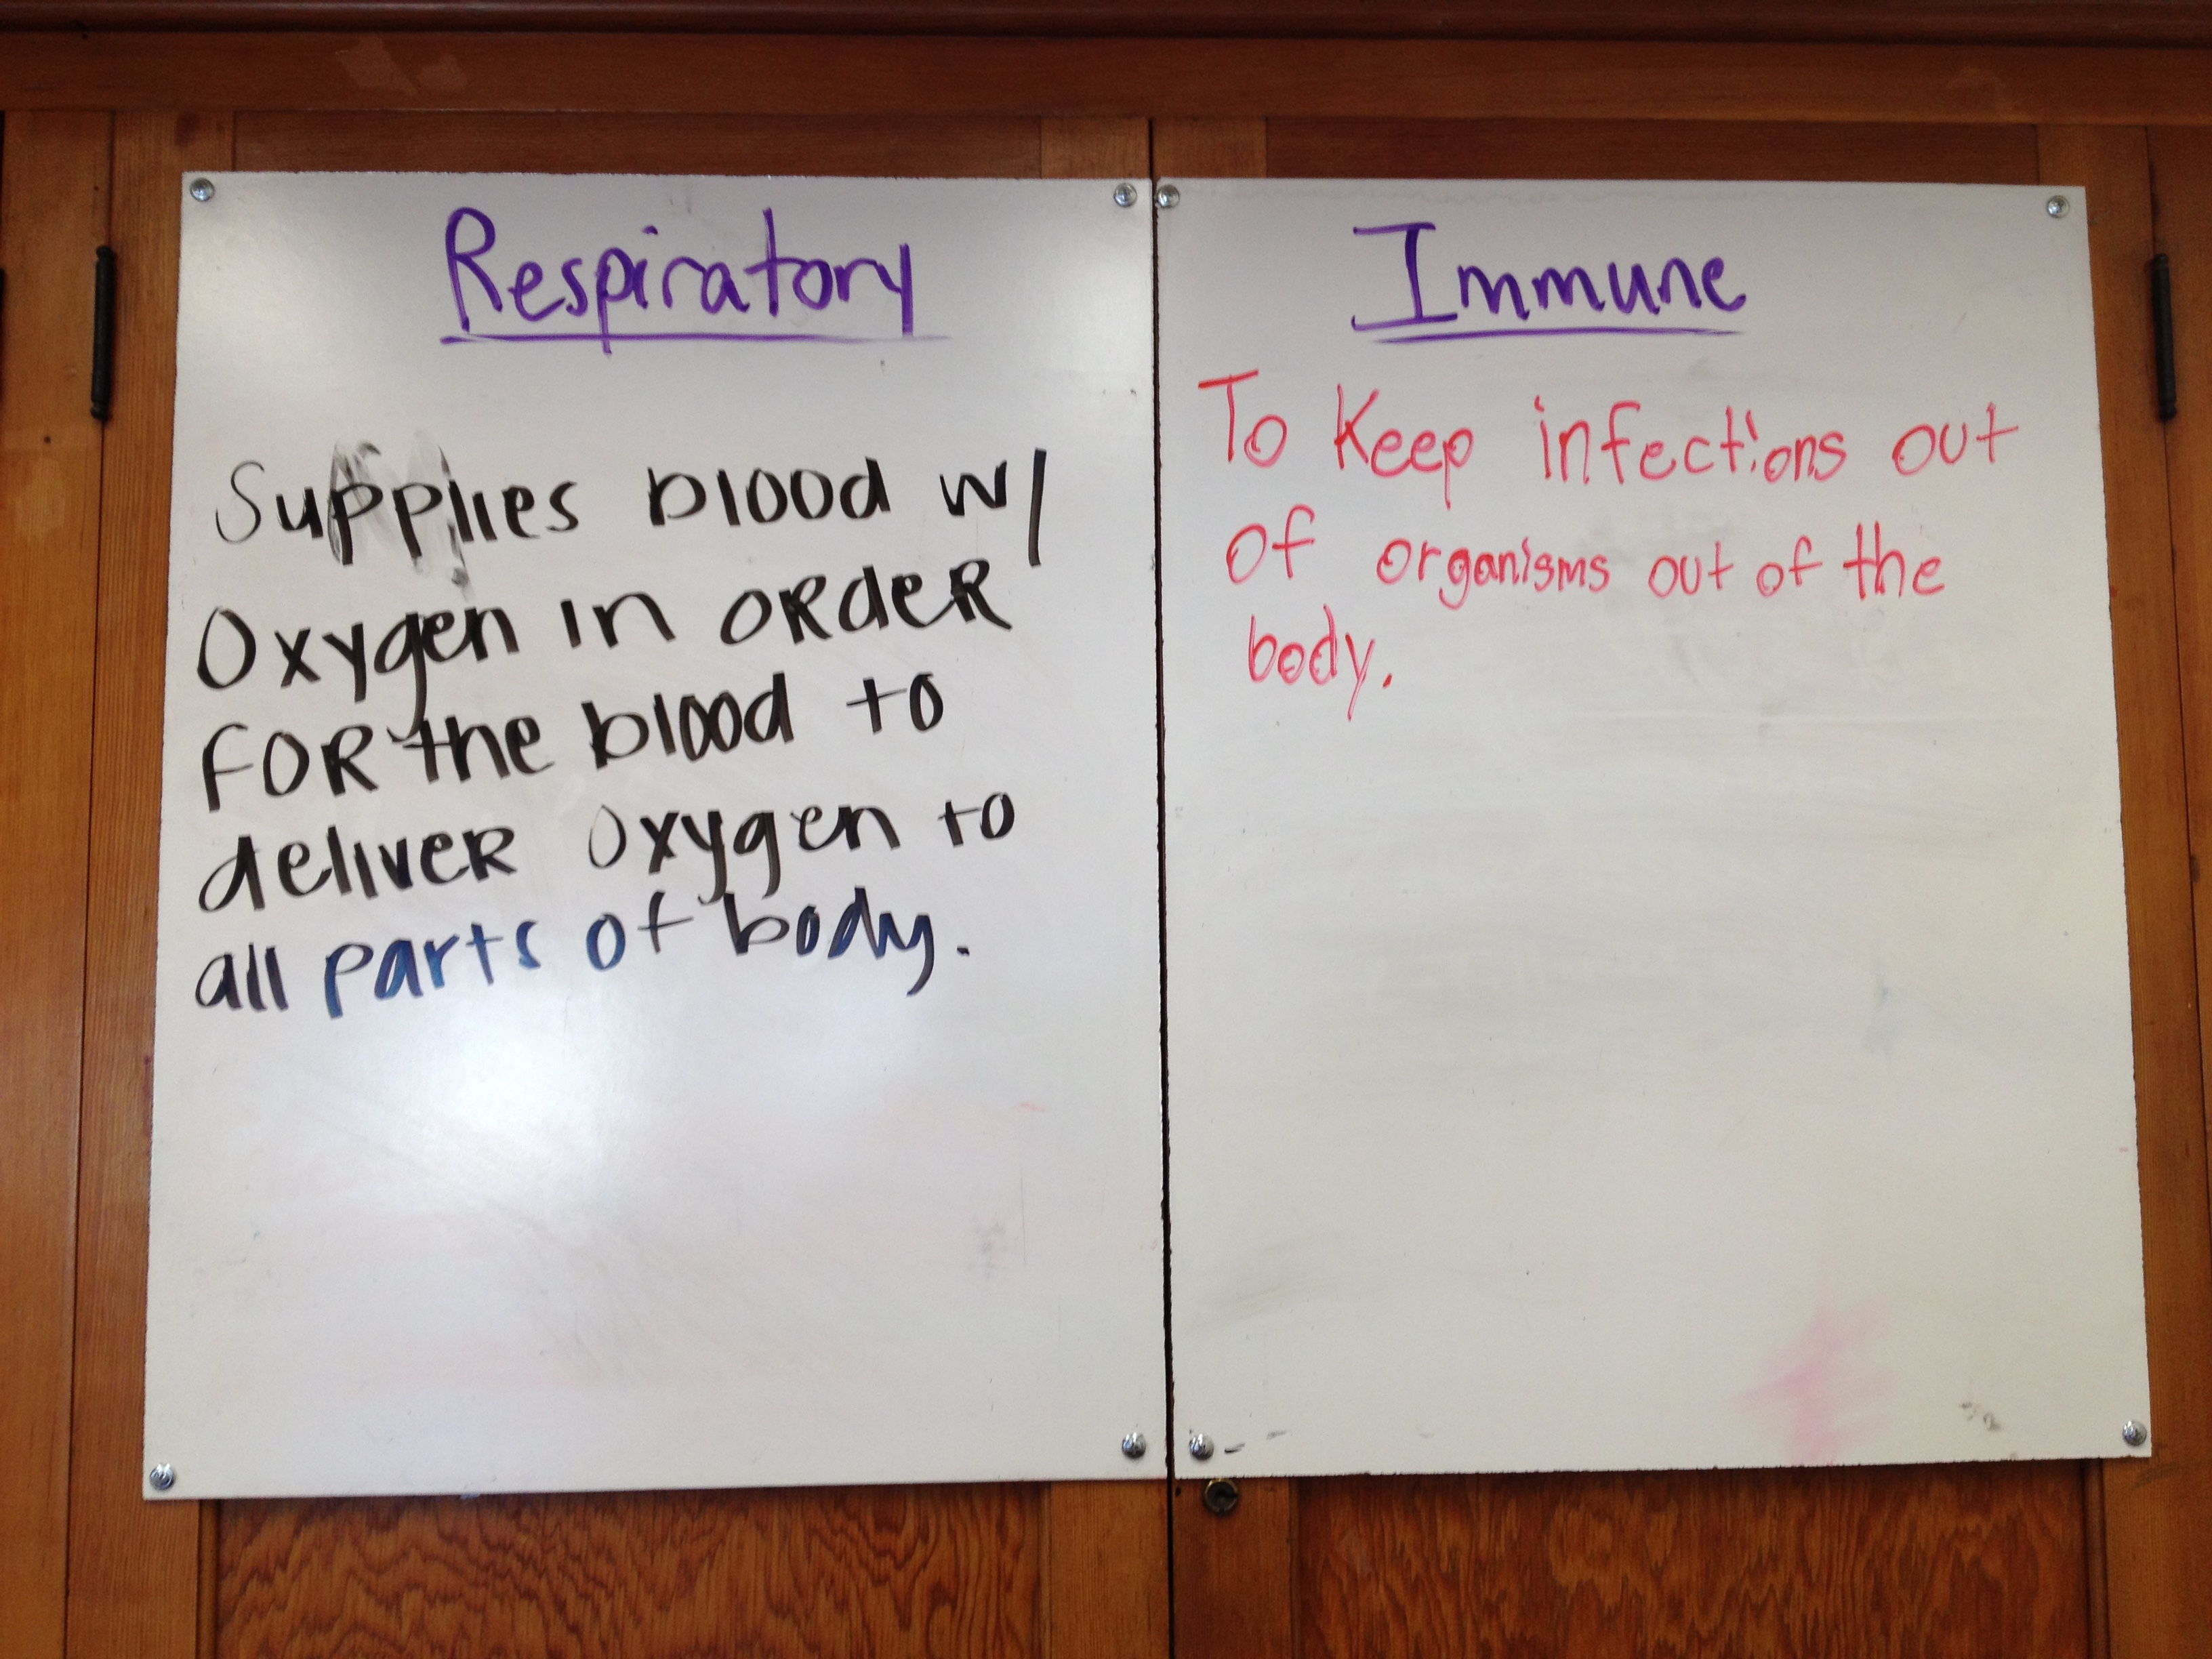 Respiratory
Supplies blood w/
Oxygen in order
for the blood to
deliver oxygen to
all parts of body.
Immune
To Keep infections out
of organisms out of the
body.